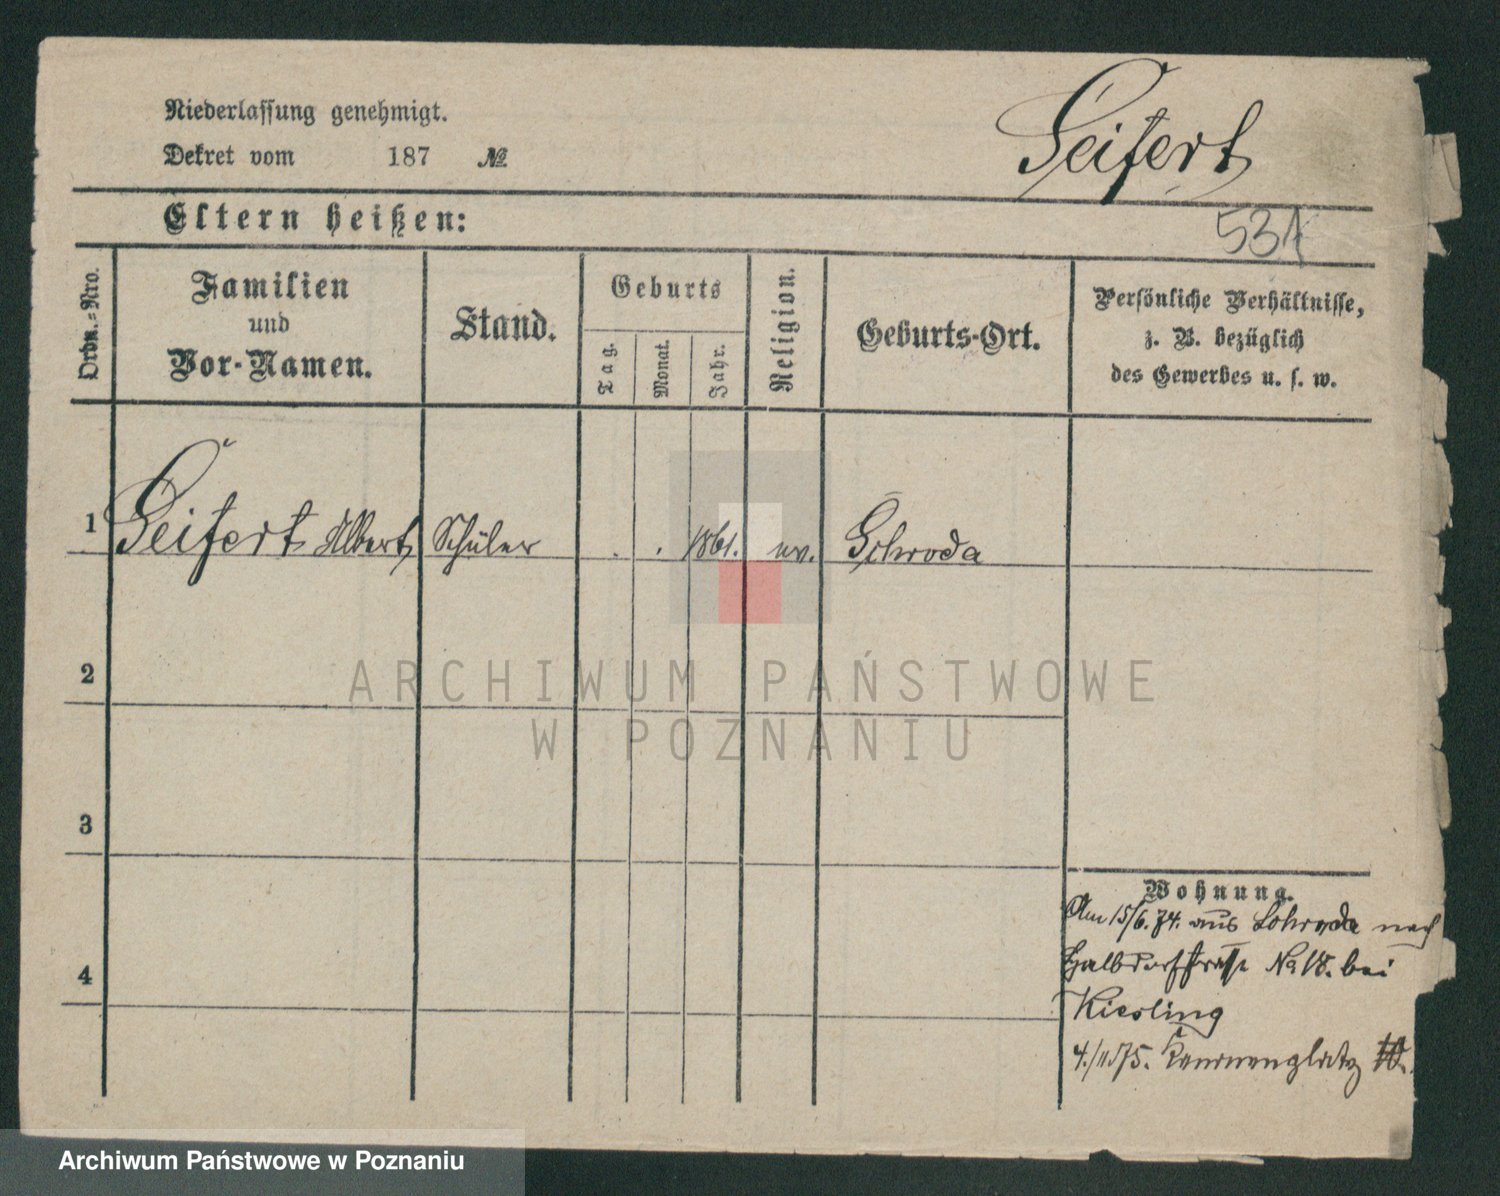 Niederlassung genehmigt.
Dekret vom 187 №
Seifert
Eltern heißen:
531
Ordn.-Nro.
Familien
und
Vor-Namen.
Stand.
Geburts
Tag.
Monat.
Jahr.
Religion.
Geburts-Ort.
Persönliche Verhältnisse,
z. B. bezüglich
des Gewerbes u. s. w.
1 Seifert Albert Schüler . . 1861. ev. Schroda
2
3
4
Wohnung.
Am 15/6. 74. aus Schroda nach
Halbdorfstraße No 18. bei
Kiesling
4./11 75.
ARCHIWUM PAŃSTWOWE
W POZNANIU
Archiwum Państwowe w Poznaniu